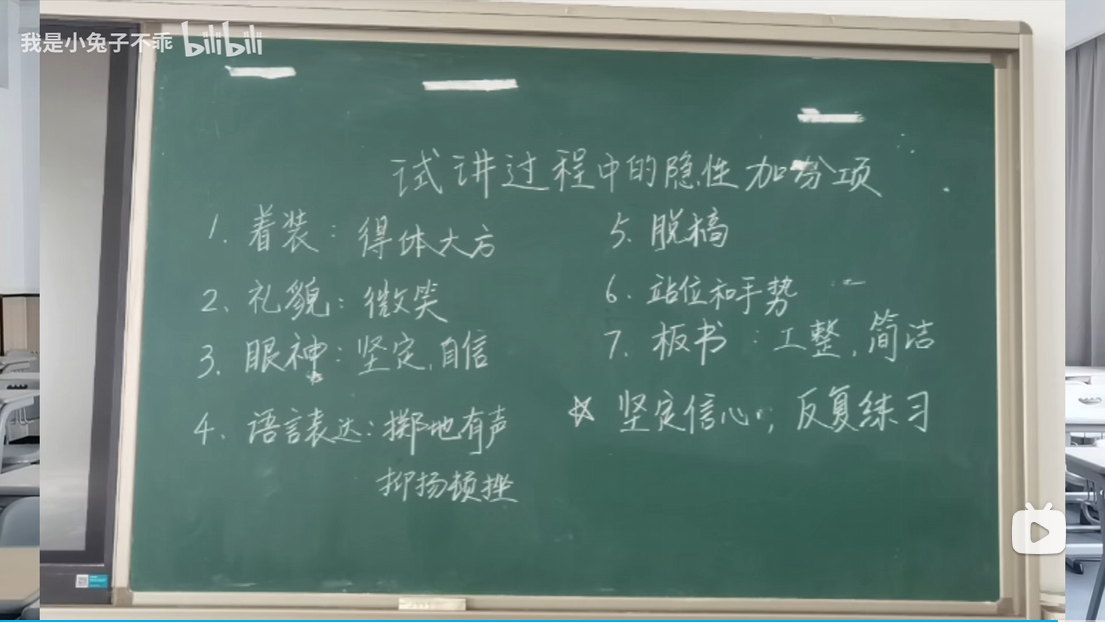 我是小兔子不乖 bilibili
试讲过程中的隐性加分项
1. 着装：得体大方
2、礼貌：微笑
3、眼神：坚定，自信
4、语言表达：掷地有声
抑扬顿挫
5、脱稿
6、站位和手势
7、板书：工整，简洁
☆ 坚定信心，反复练习